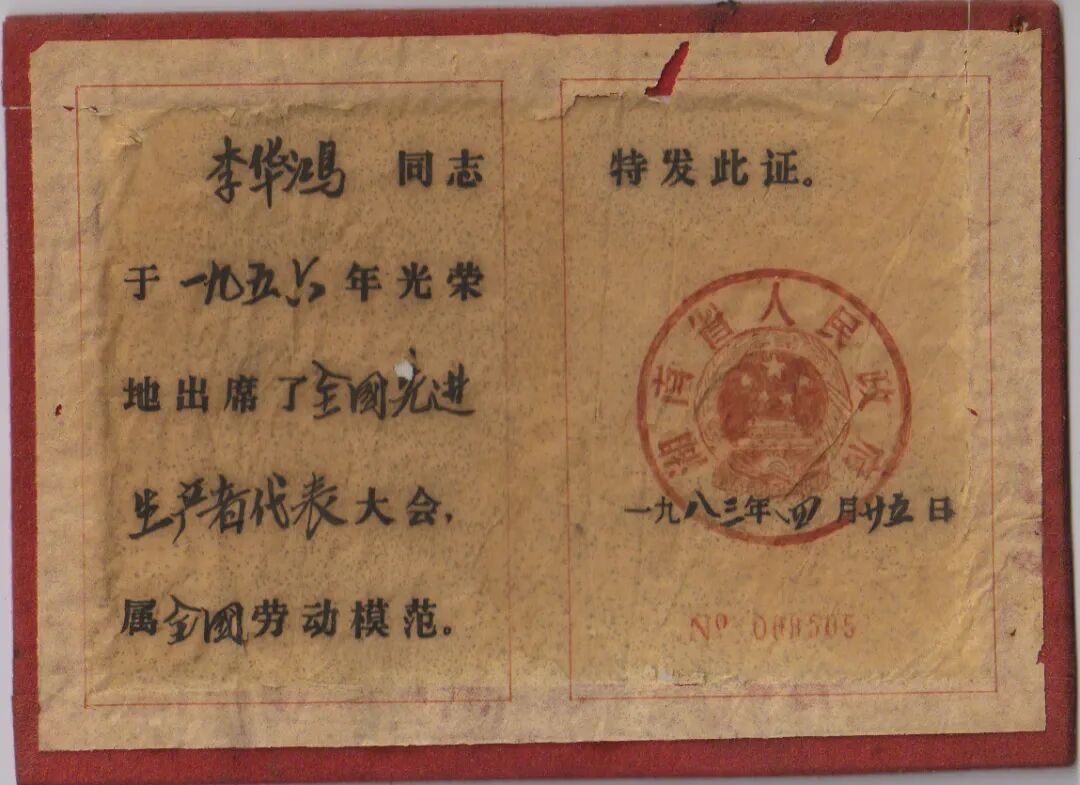 李华鸿 同志
于一九五六年光荣
地出席了全國先进
生产者代表大会，
属全國劳动模范。
特发此证。
湖南省人民政府
一九八三年四月廿五日
Nº 008505